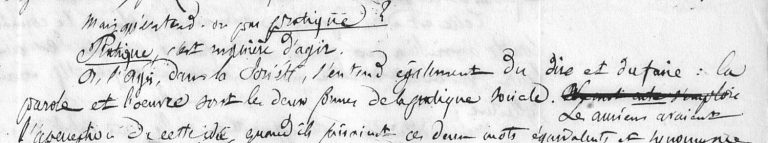 Mais qu'entend-on par pratique ?
Pratique, c'est manière d'agir.
Or, l'Agir, dans la Société, s'entend également du dire et du faire : la
parole et l'œuvre sont les deux formes de la pratique sociale.
Les anciens avaient
l'aperception de cette idée, quand ils faisaient ces deux mots équivalents et synonymes